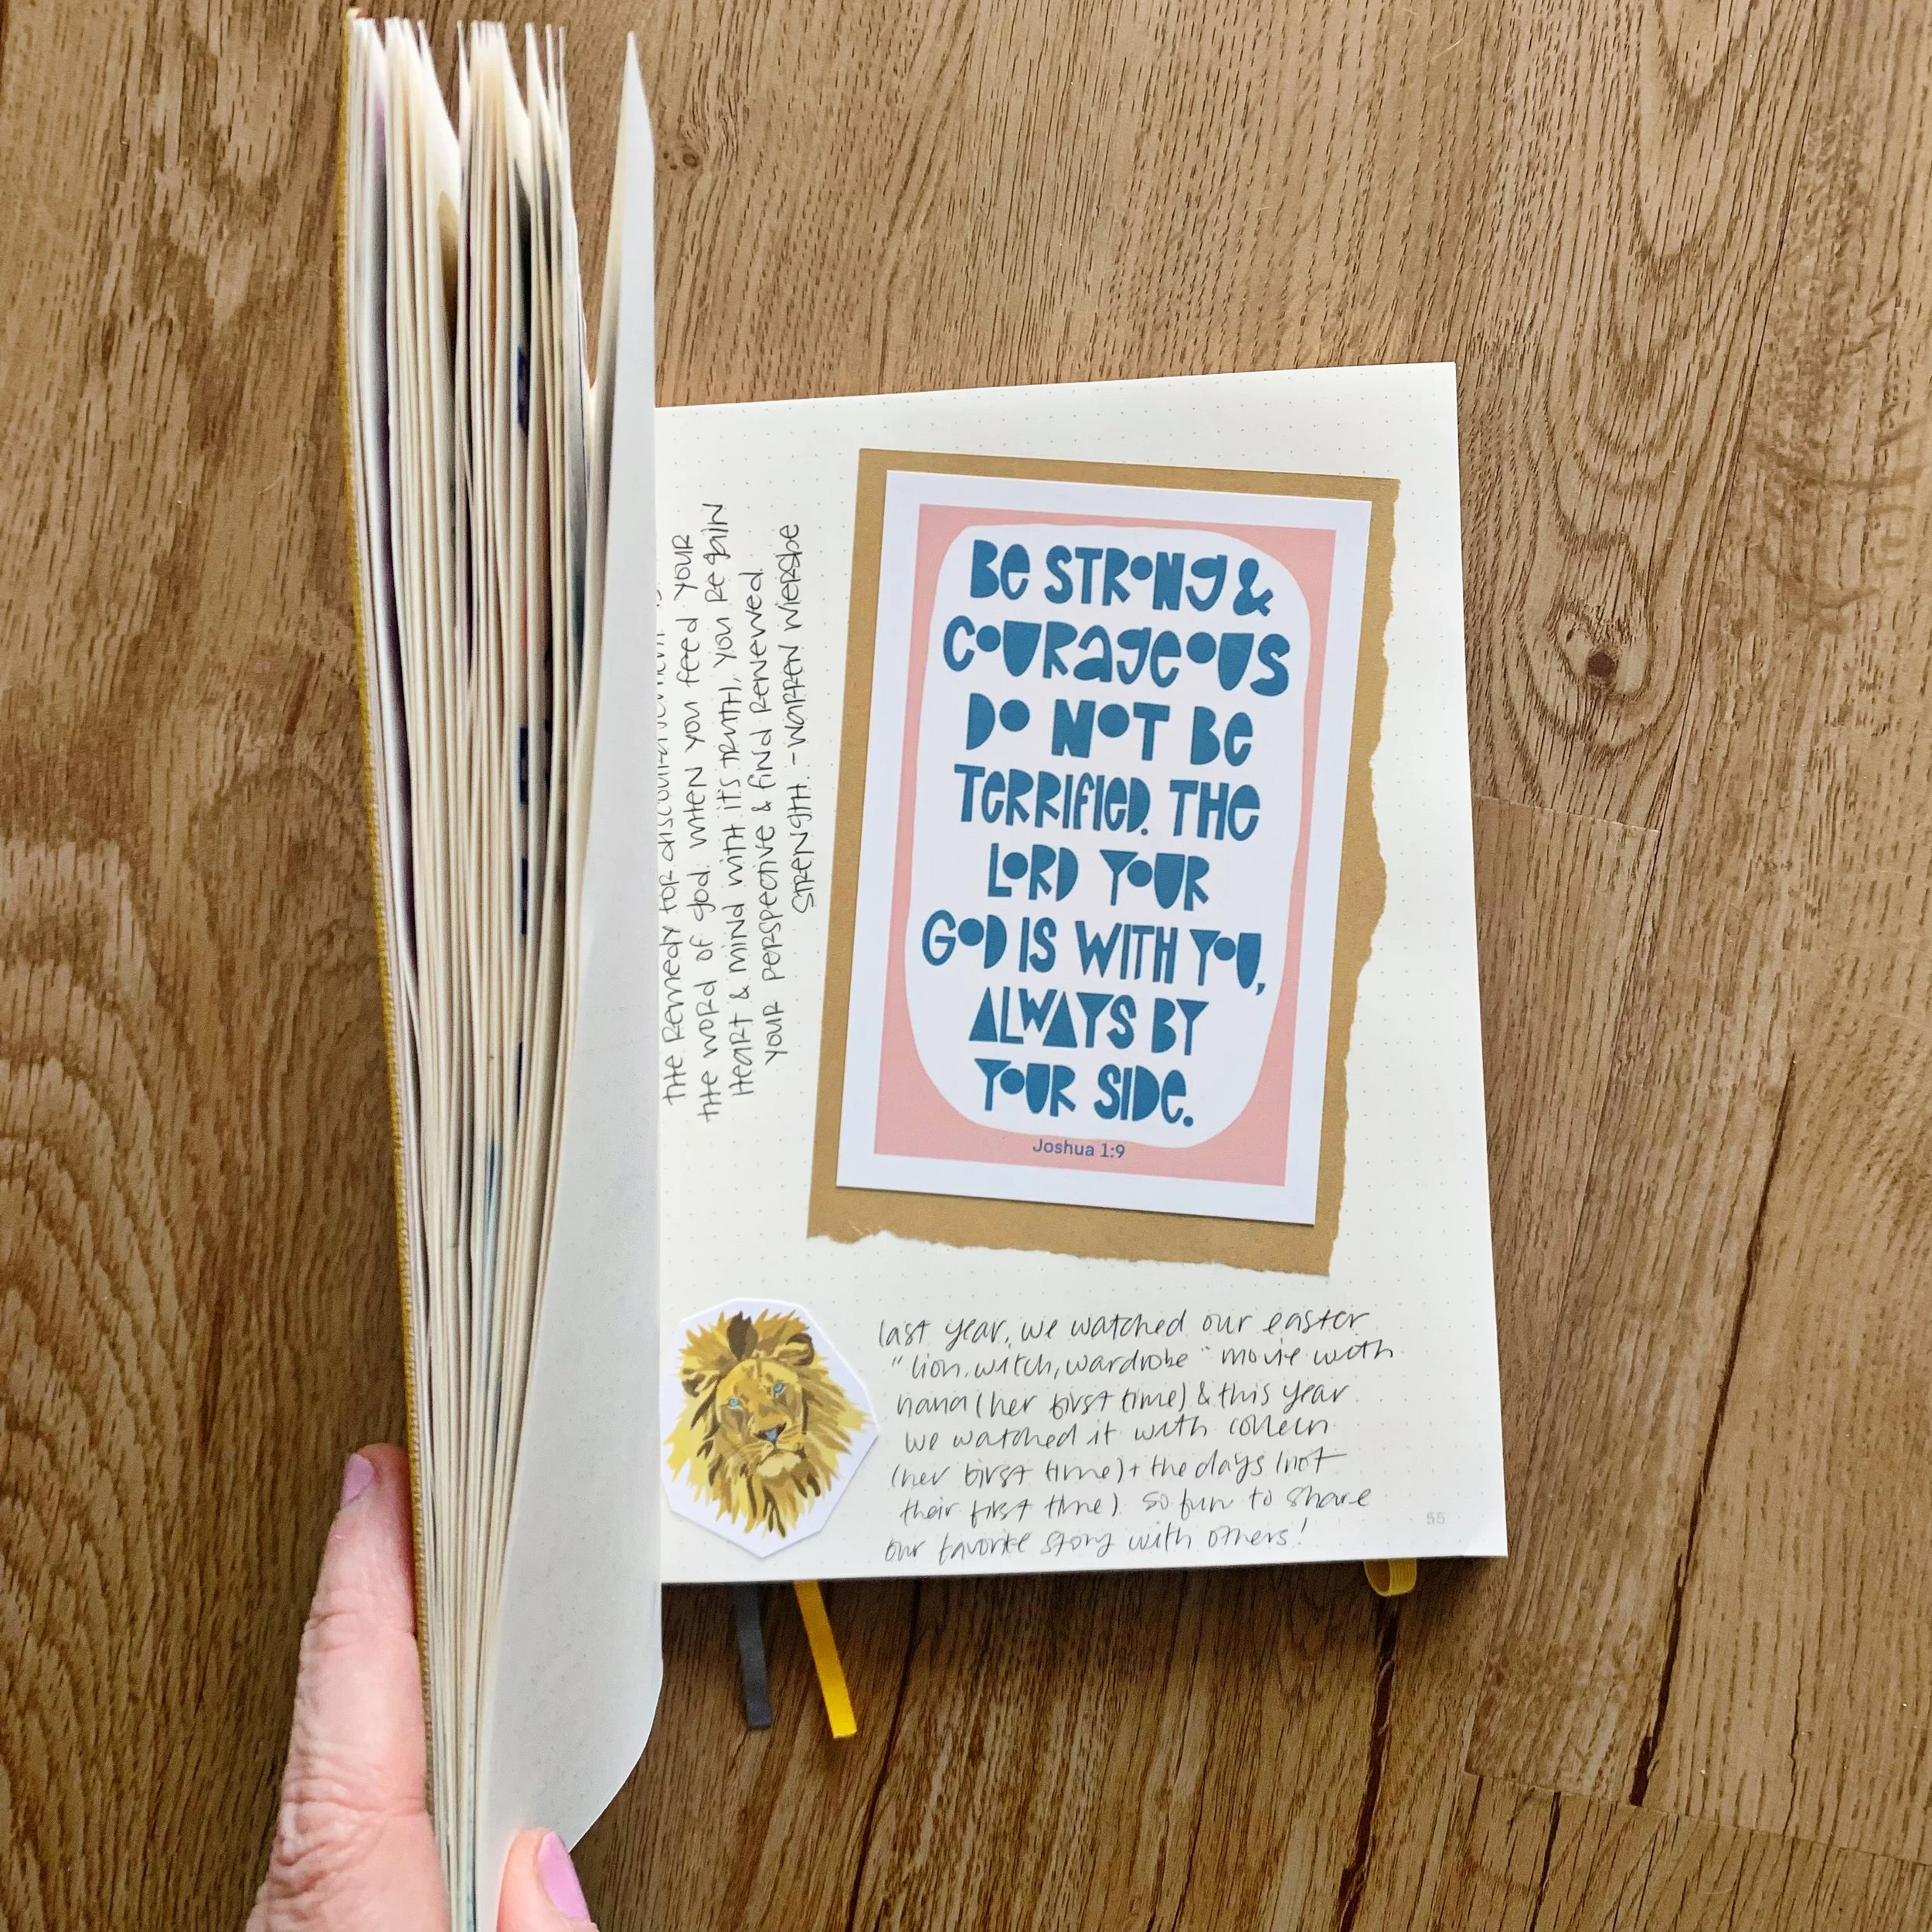 the remedy for discouragement is
the word of god. when you feed your
heart & mind with it's truth, you regain
your perspective & find renewed
strength. - warren wiersbe
Be STRONg &
COURageOUS
DO NOT Be
TeRRIfIeD. THe
LORD YOUR
GOD IS WITH YOU,
ALWAYS BY
YOUR SIDe.
Joshua 1:9
last year, we watched our easter
"lion, witch, wardrobe" movie with
nana (her first time) & this year
we watched it with colleen
(her first time) + the days (not
their first time). so fun to share
our favorite story with others!
55